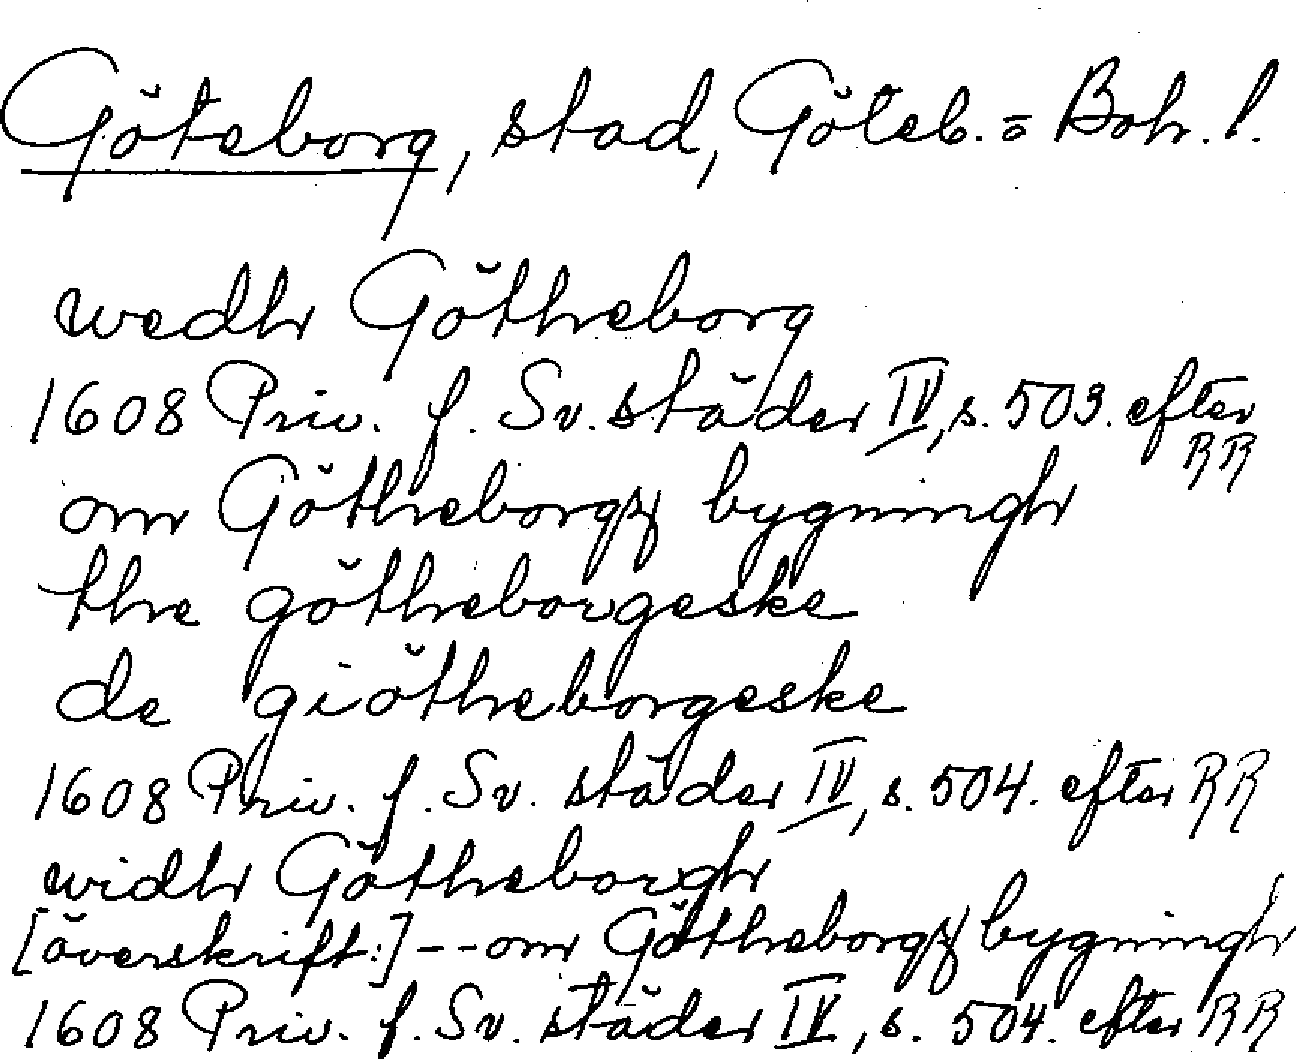 Göteborg, stad, Göteb. o Boh. l.
wedh Götheborg
1608 Priv. f. Sv. städer IV, s. 503. efter RR
om Götheborgz bygningh
the götheborgeske
de giötheborgeske
1608 Priv. f. Sv. städer IV, s. 504. efter RR
widh Götheborgh
[överskrift:] -- om Götheborgz bygningh
1608 Priv. f. Sv. städer IV, s. 504. efter RR